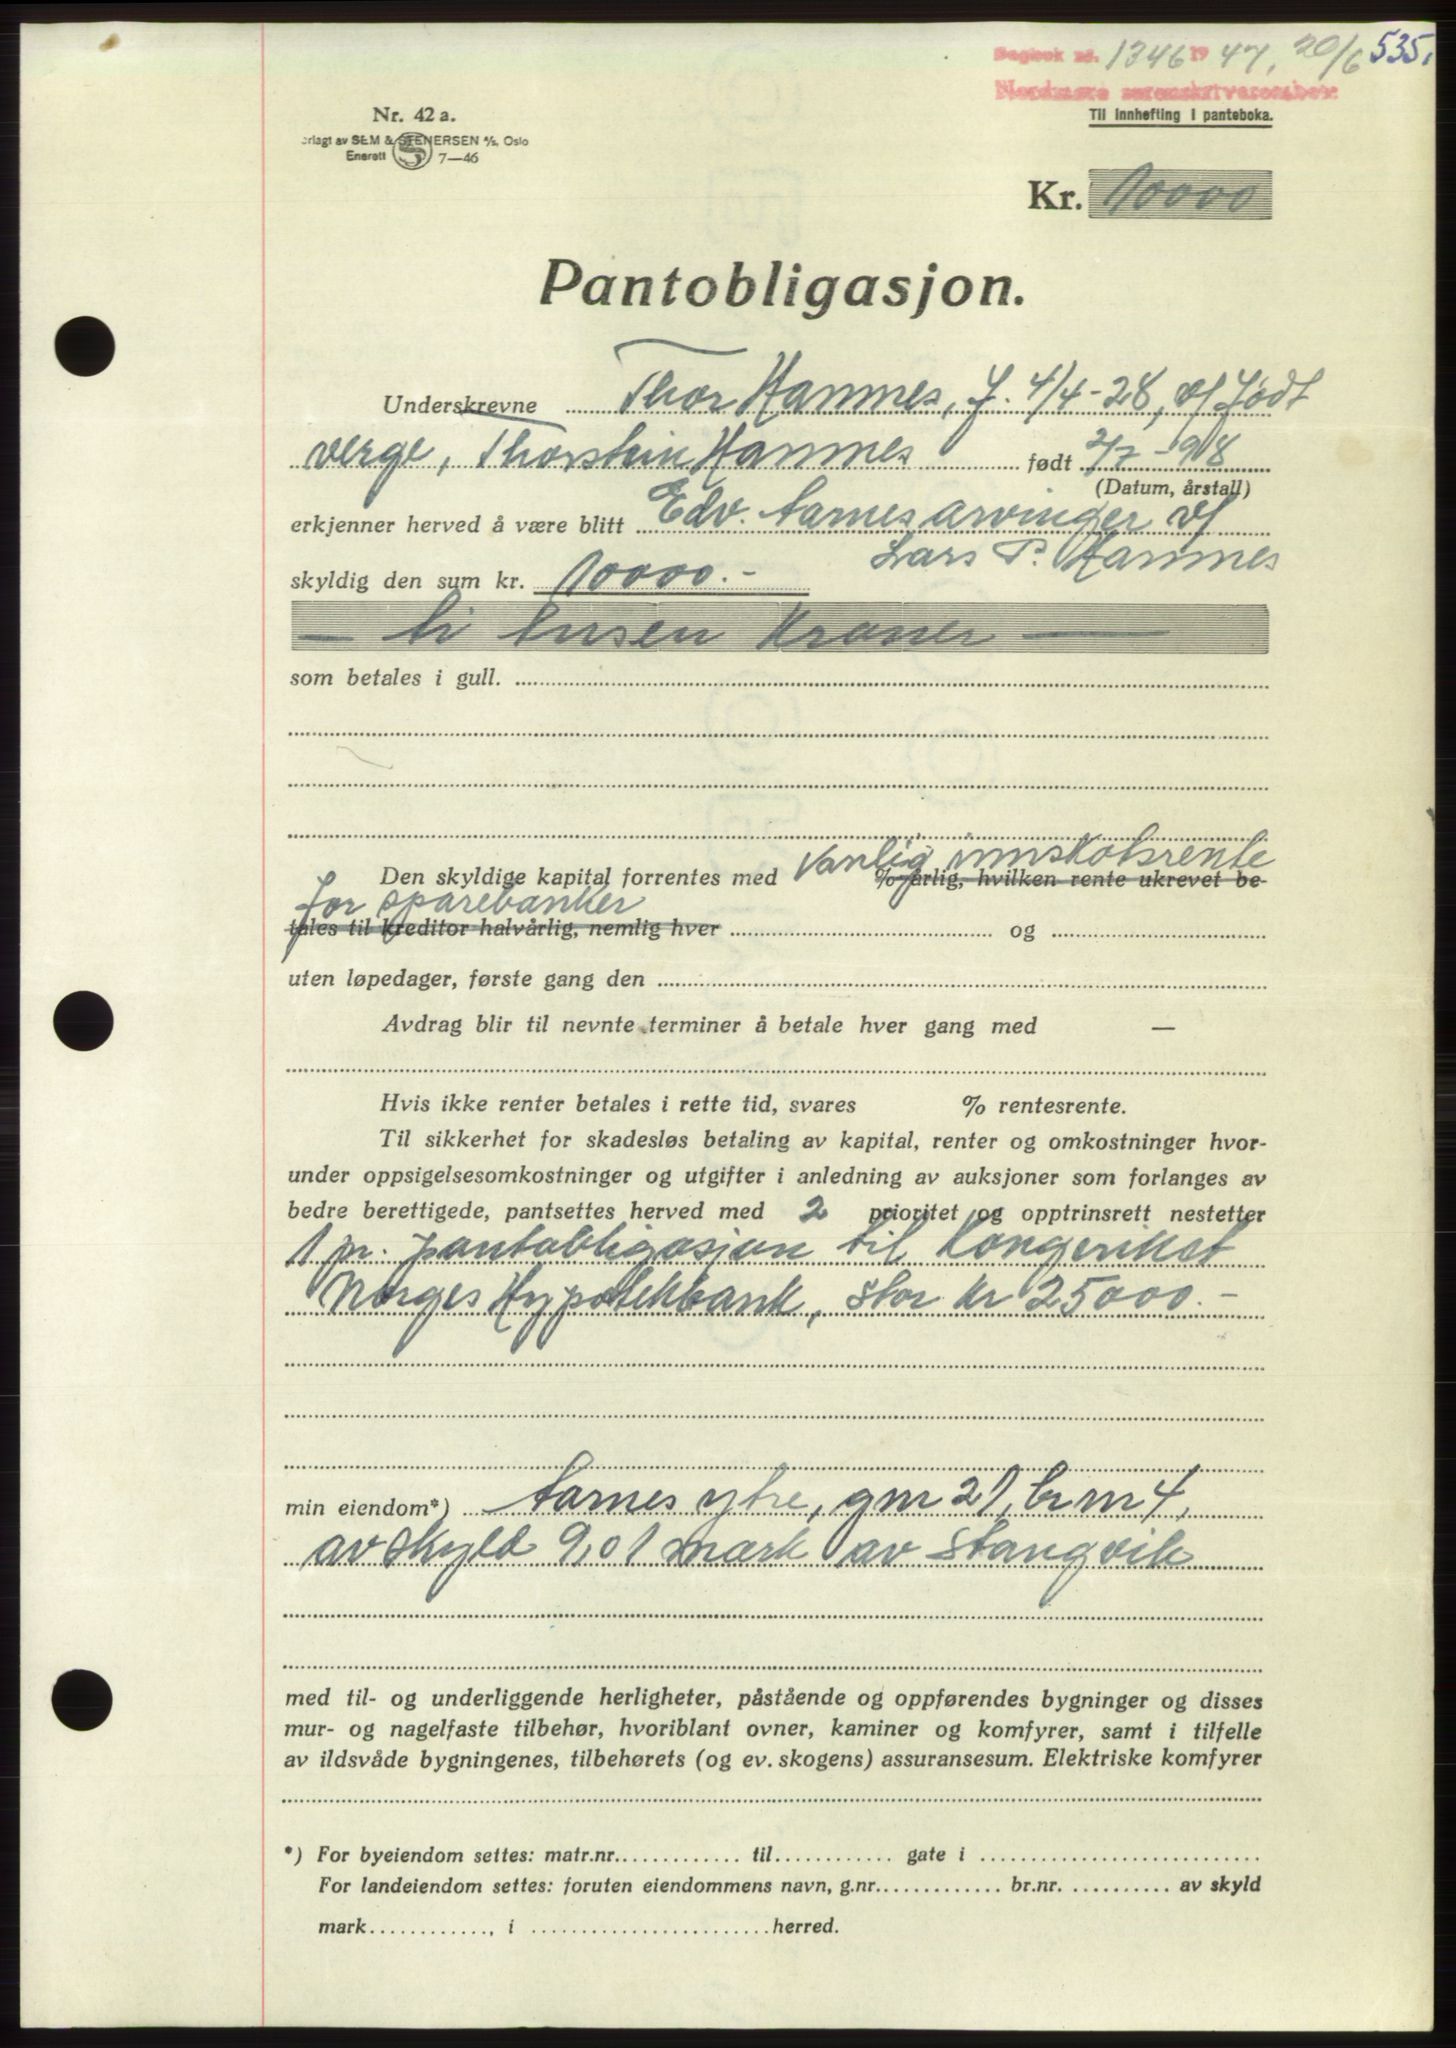 Dagbok nr. 1346 1947, 20/6 535.
Nordmøre sorenskriverembete
Nr. 42 a.
Til innhefting i panteboka.
orlagt av SEM & STENERSEN A/S, Oslo
Enerett 7—46
Kr. 10000
Pantobligasjon.
Underskrevne Thor Hamnes, f. 4/4-28, v/ født
verge, Thorstein Hamnes født 2/7-1918
(Datum, årstall)
erkjenner herved å være blitt Edv. Aarnes arvinger v/
Lars P. Hamnes
skyldig den sum kr. 10000.-
— ti tusen Kroner —
som betales i gull.
Den skyldige kapital forrentes med vanlig innskotsrente
% årlig, hvilken rente ukrevet be-
for sparebanker
tales til kreditor halvårlig, nemlig hver og
uten løpedager, første gang den
Avdrag blir til nevnte terminer å betale hver gang med —
Hvis ikke renter betales i rette tid, svares % rentesrente.
Til sikkerhet for skadesløs betaling av kapital, renter og omkostninger hvor-
under oppsigelsesomkostninger og utgifter i anledning av auksjoner som forlanges av
bedre berettigede, pantsettes herved med 2 prioritet og opptrinsrett nestetter
1 pr. pantobligasjon til Kongeriket
Norges Hypotekbank, stor kr 25000.-
min eiendom*) Aarnes ytre, gnr 21, br nr 4,
av skyld 9,01 mark av Stangvik
med til- og underliggende herligheter, påstående og oppførendes bygninger og disses
mur- og nagelfaste tilbehør, hvoriblant ovner, kaminer og komfyrer, samt i tilfelle
av ildsvåde bygningenes, tilbehørets (og ev. skogens) assuransesum. Elektriske komfyrer
*) For byeiendom settes: matr.nr. til gate i
For landeiendom settes: foruten eiendommens navn, g.nr. br.nr. av skyld
mark, i herred.